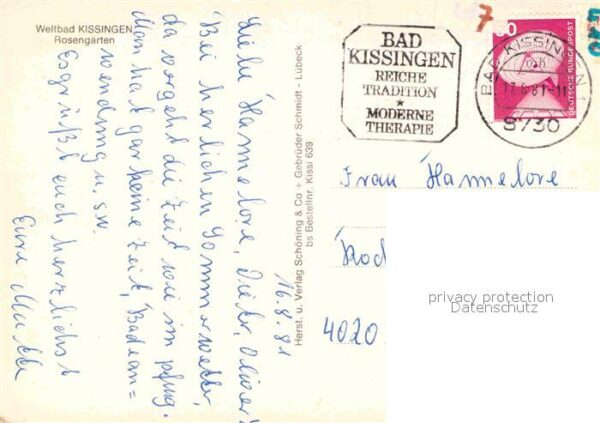 Weltbad KISSINGEN
Rosengarten
Liebe Hannelore, Dieter, Oliver!
Bei herlichen Sommerwetter,
da vergeht die Zeit wie im pflug.
Man hat gar keine Zeit, Badean=
wendung u. s.w.
Es grüßt euch herzlichst
Eure Mutti
16.8.81
Herst. u. Verlag Schöning & Co + Gebrüder Schmidt - Lübeck
bs Bestellnr. Kissi 639
7
BAD
KISSINGEN
REICHE
TRADITION
★
MODERNE
THERAPIE
BAD KISSINGEN
8730
DEUTSCHE BUNDESPOST
Frau Hannelore
4020
privacy protection
Datenschutz